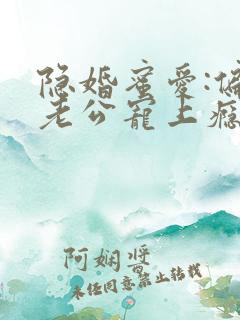 隐婚蜜爱:偏
老公宠上瘾
阿娴酱
未经同意禁止转载